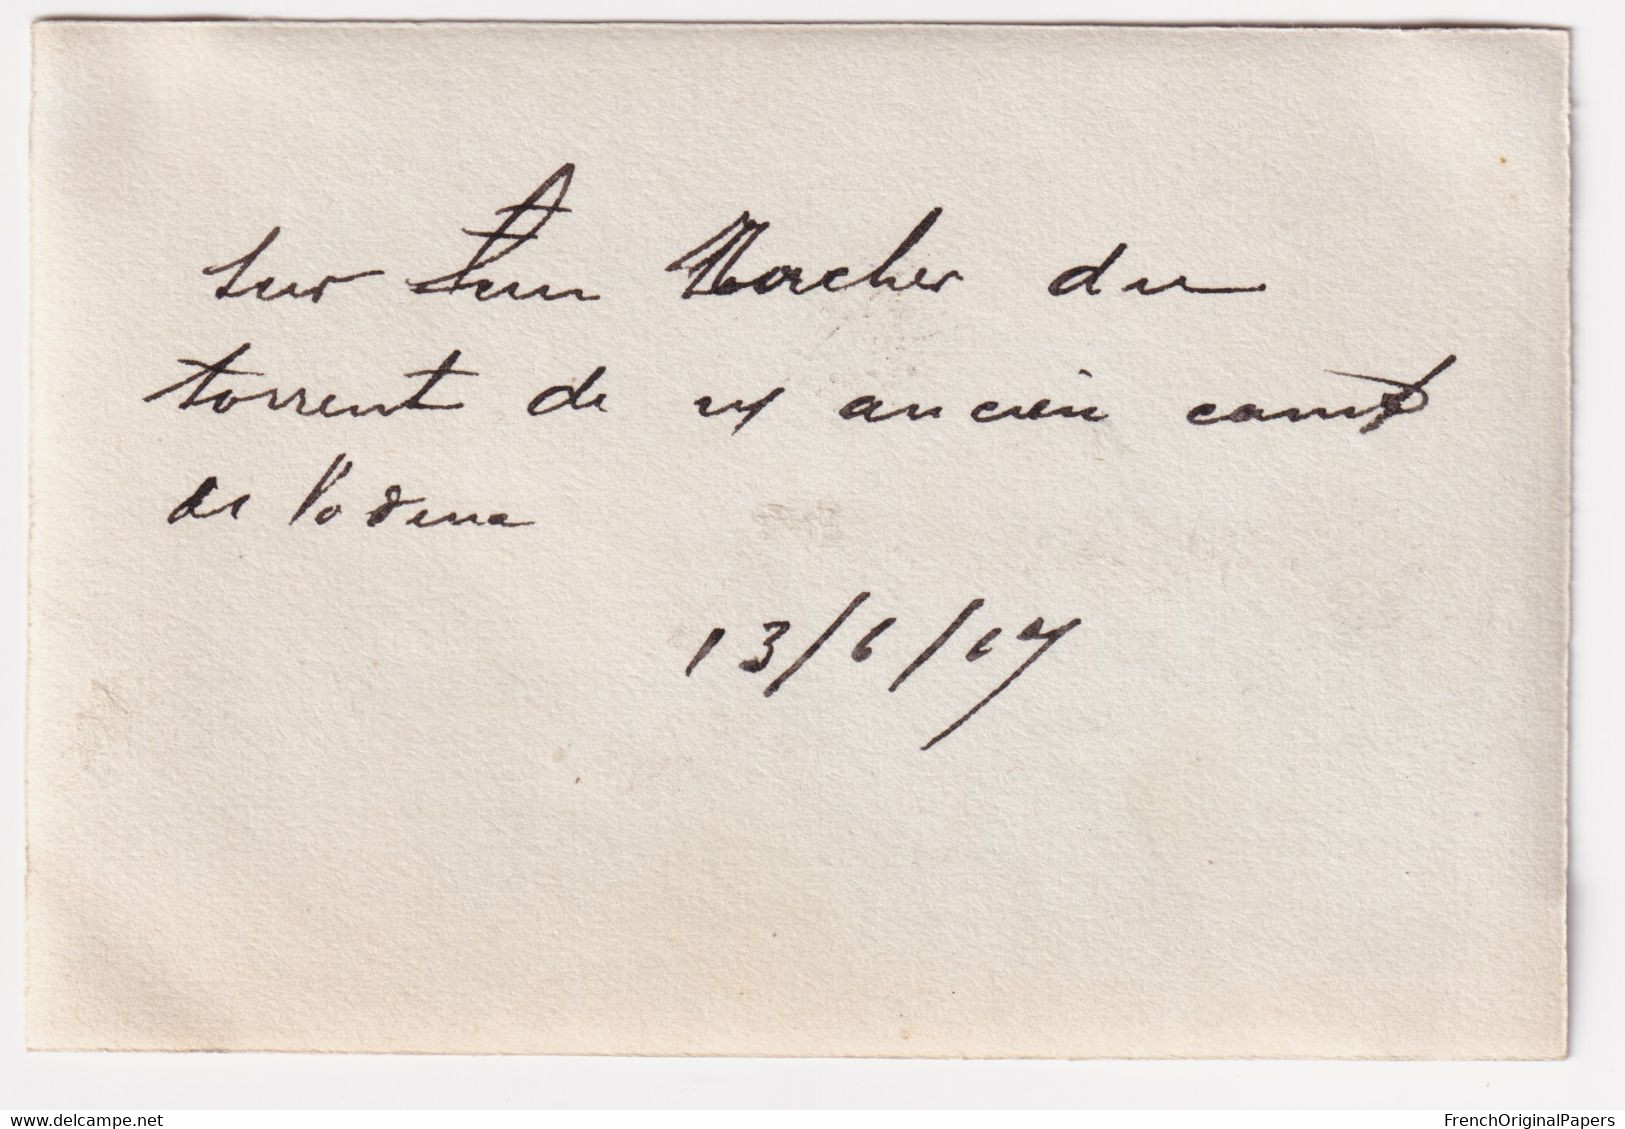 sur l'un Rocher du
torrent de ancien camp
de Vodena
13/6/17
www.delcampe.com
FrenchOriginalPapers